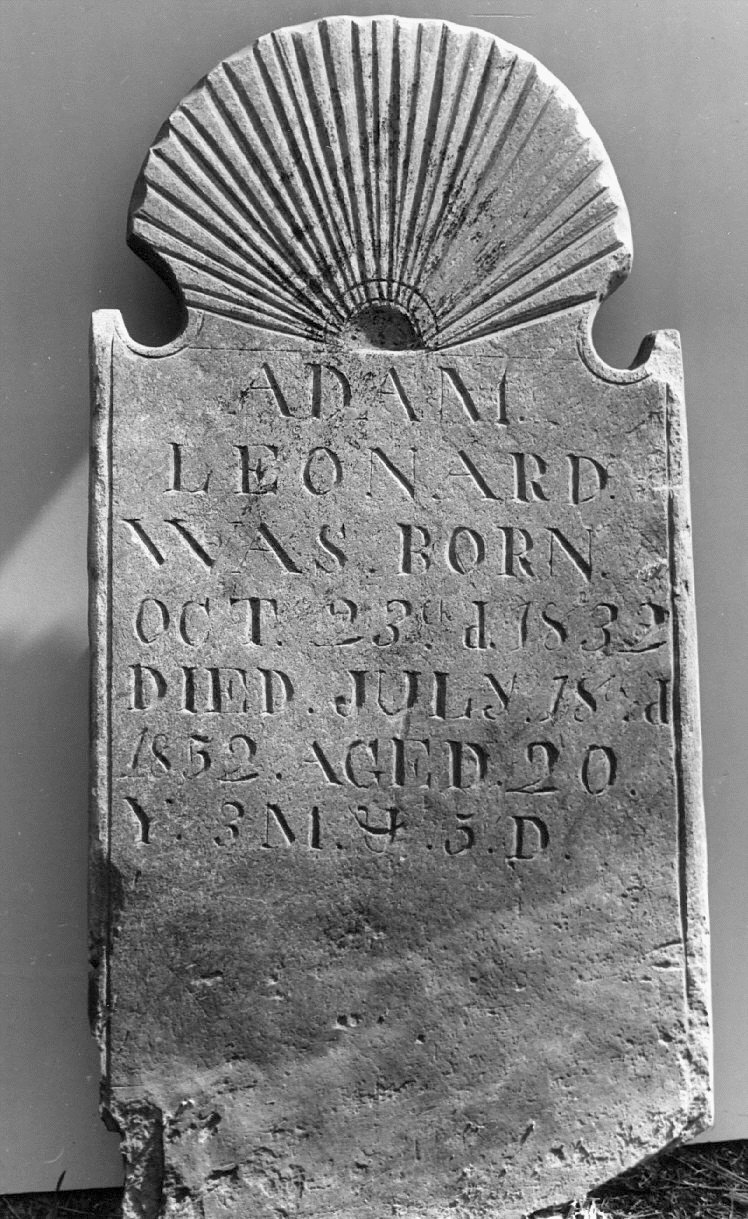 ADAM.
LEONARD.
WAS. BORN.
OCT. 23. d. 1832
DIED. JULY. 18. d
1852. AGED 20.
Y. 3M. & .5.D.